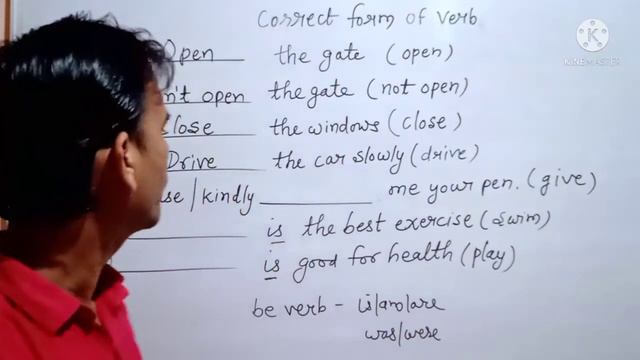 Correct form of verb
Open the gate (open)
n't open the gate (not open)
Close the windows (close)
Drive the car slowly (drive)
se/kindly ________ one your pen. (give)
________ is the best exercise (swim)
________ is good for health (play)
be verb - is/am/are
was/were
KINEMASTER